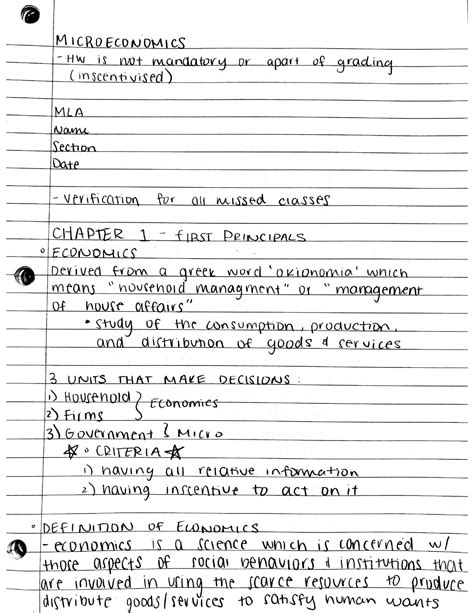 MICROECONOMICS
- HW is not mandatory or apart of grading
(inscentivised)
MLA
Name
Section
Date
- verification for all missed classes
CHAPTER 1 - FIRST PRINCIPALS
◦ ECONOMICS
Derived from a greek word 'okionomia' which
means "household managment" or "management
of house affairs"
• study of the consumption, production,
and distribution of goods & services
3 UNITS THAT MAKE DECISIONS:
1) Household } Economics
2) Firms
3) Government } Micro
☆ ◦ CRITERIA ☆
1) having all relative information
2) having inscentive to act on it
◦ DEFINITION OF ECONOMICS
- economics is a science which is concerned w/
those aspects of social behaviors & institutions that
are invoved in using the scarce resources to produce
distribute goods/services to satisfy human wants